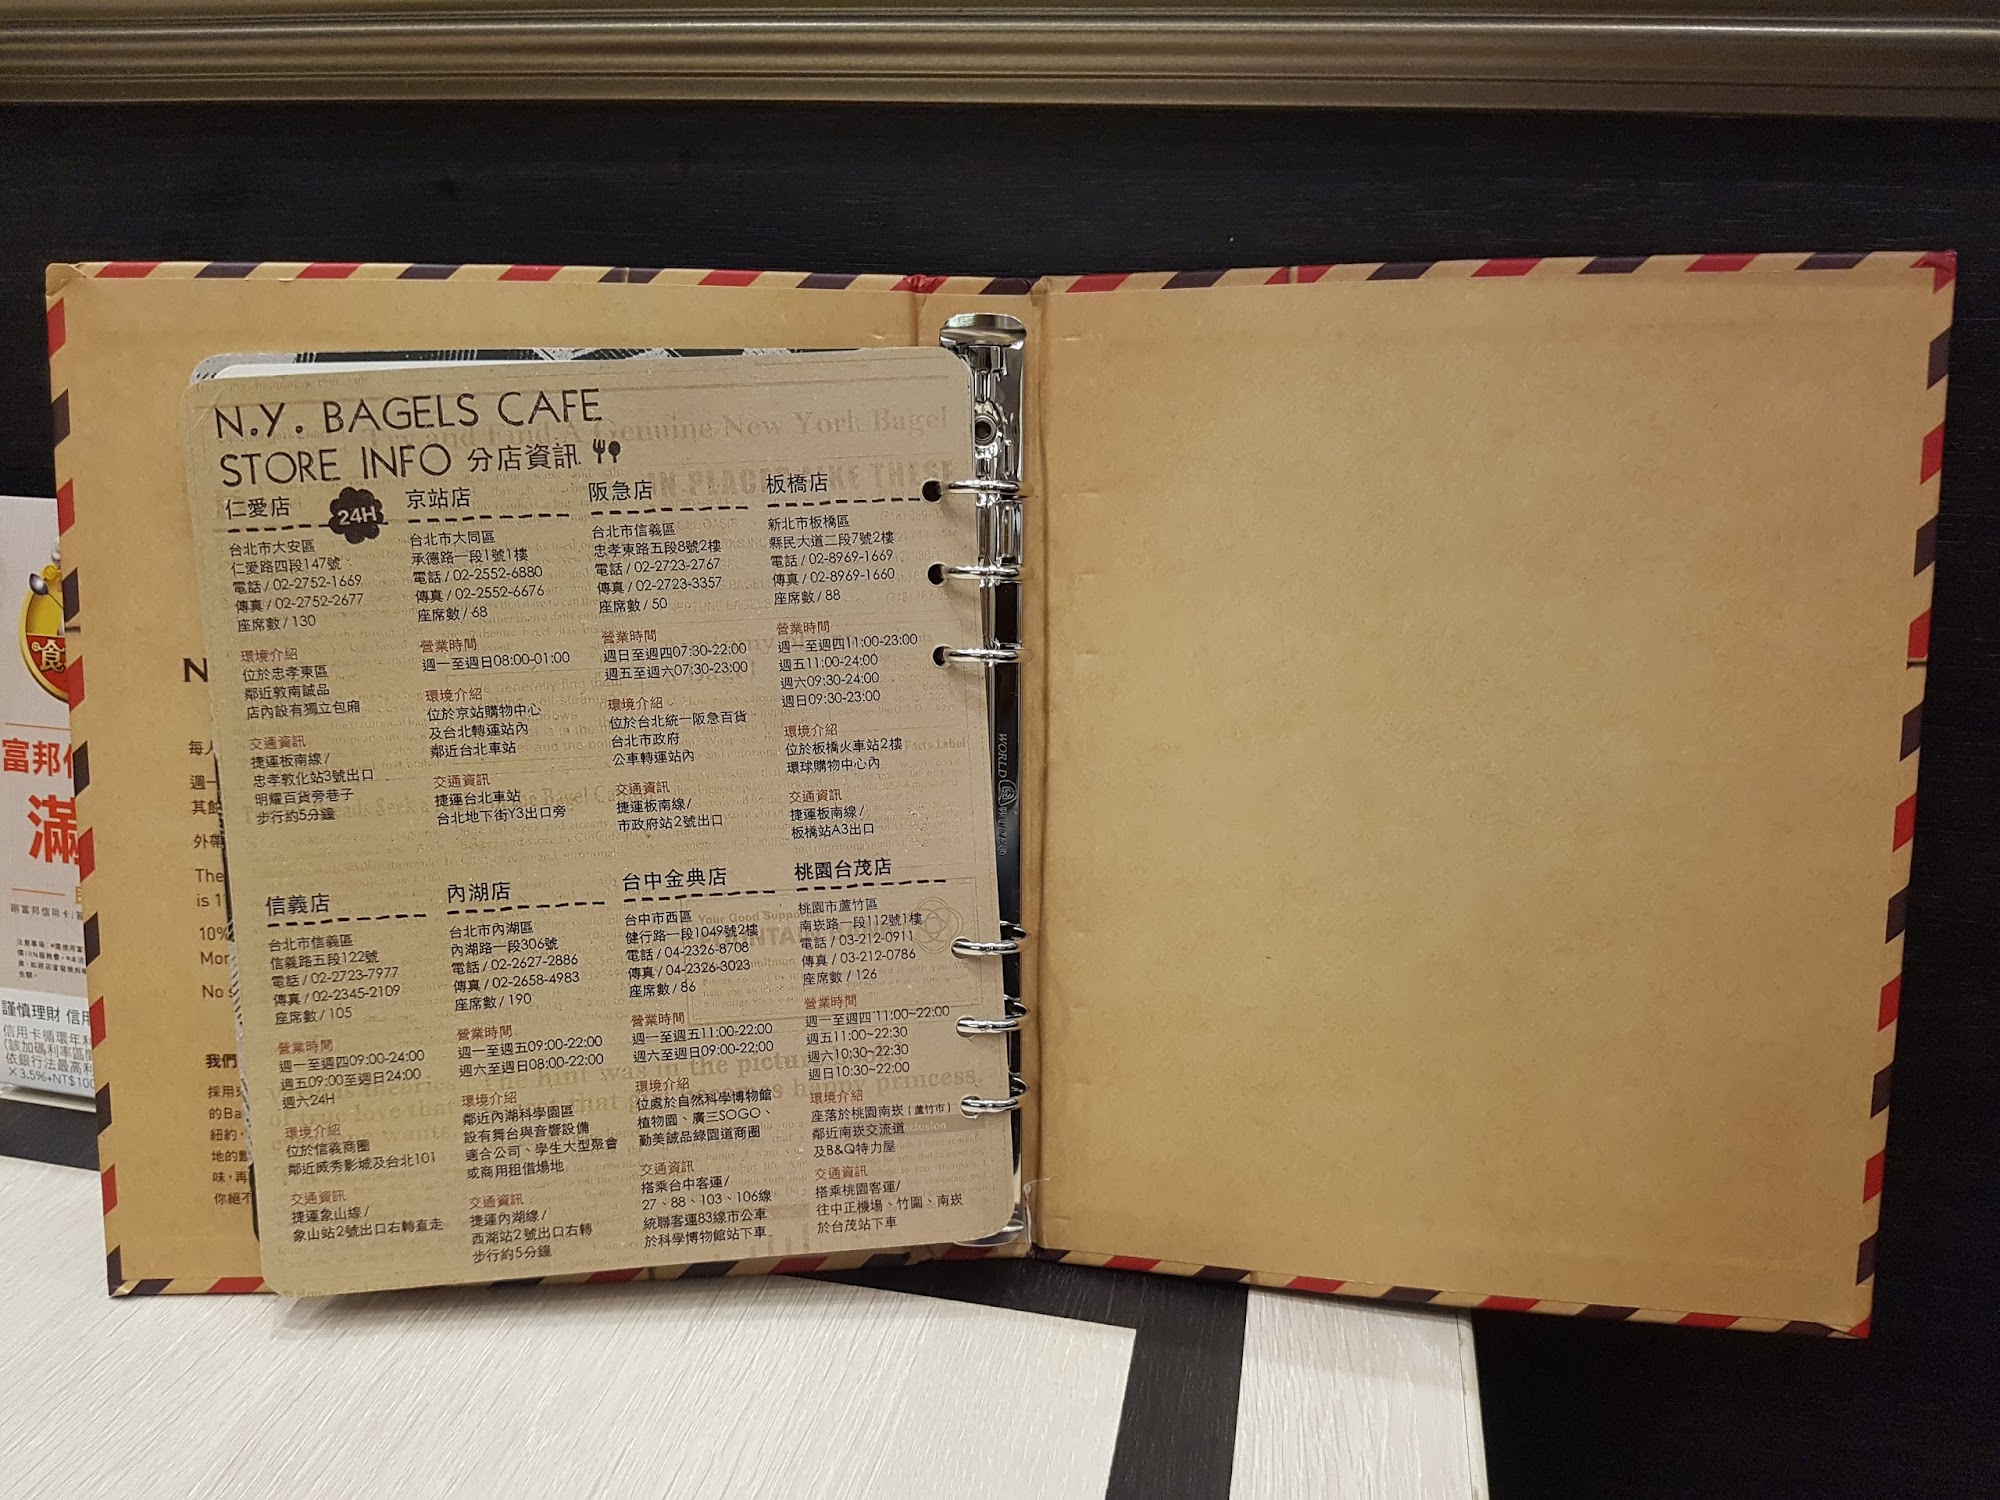 N.Y. BAGELS CAFE
STORE INFO 分店資訊
仁愛店
24H
台北市大安區
仁愛路四段147號
電話 / 02-2752-1669
傳真 / 02-2752-2677
座席數 / 130
環境介紹
位於忠孝東區
鄰近敦南誠品
店內設有獨立包廂
交通資訊
捷運板南線 /
忠孝敦化站3號出口
明耀百貨旁巷子
步行約5分鐘
京站店
台北市大同區
承德路一段1號1樓
電話 / 02-2552-6880
傳真 / 02-2552-6676
座席數 / 68
營業時間
週一至週日08:00-01:00
環境介紹
位於京站購物中心
及台北轉運站內
鄰近台北車站
交通資訊
捷運台北車站
台北地下街Y3出口旁
阪急店
台北市信義區
忠孝東路五段8號2樓
電話 / 02-2723-2767
傳真 / 02-2723-3357
座席數 / 50
營業時間
週日至週四07:30-22:00
週五至週六07:30-23:00
環境介紹
位於台北統一阪急百貨
台北市政府
公車轉運站內
交通資訊
捷運板南線 /
市政府站2號出口
板橋店
新北市板橋區
縣民大道二段7號2樓
電話 / 02-8969-1669
傳真 / 02-8969-1660
座席數 / 88
營業時間
週一至週四11:00-23:00
週五11:00-24:00
週六09:30-24:00
週日09:30-23:00
環境介紹
位於板橋火車站2樓
環球購物中心內
交通資訊
捷運板南線 /
板橋站A3出口
信義店
台北市信義區
信義路五段122號
電話 / 02-2723-7977
傳真 / 02-2345-2109
座席數 / 105
營業時間
週一至週四09:00-24:00
週五09:00至週日24:00
週六24H
環境介紹
位於信義商圈
鄰近威秀影城及台北101
交通資訊
捷運象山線 /
象山站2號出口右轉直走
內湖店
台北市內湖區
內湖路一段306號
電話 / 02-2627-2886
傳真 / 02-2658-4983
座席數 / 190
營業時間
週一至週五09:00-22:00
週六至週日08:00-22:00
環境介紹
鄰近內湖科學園區
設有舞台與音響設備
適合公司、學生大型聚會
或商用租借場地
交通資訊
捷運內湖線 /
西湖站2號出口右轉
步行約5分鐘
台中金典店
台中市西區
健行路一段1049號2樓
電話 / 04-2326-8708
傳真 / 04-2326-3023
座席數 / 86
營業時間
週一至週五11:00-22:00
週六至週日09:00-22:00
環境介紹
位處於自然科學博物館
植物園、廣三SOGO、
勤美誠品綠園道商圈
交通資訊
搭乘台中客運 /
27、88、103、106線
統聯客運83線市公車
於科學博物館站下車
桃園台茂店
桃園市蘆竹區
南崁路一段112號1樓
電話 / 03-212-0911
傳真 / 03-212-0786
座席數 / 126
營業時間
週一至週四 11:00~22:00
週五11:00~22:30
週六10:30~22:30
週日10:30~22:00
環境介紹
座落於桃園南崁 ( 蘆竹市 )
鄰近南崁交流道
及B&Q特力屋
交通資訊
搭乘桃園客運 /
往中正機場、竹圍、南崁
於台茂站下車
富邦
滿
謹慎理財 信用
The
is 1
10%
No s
我們
採用
的Ba
紐約
味，再